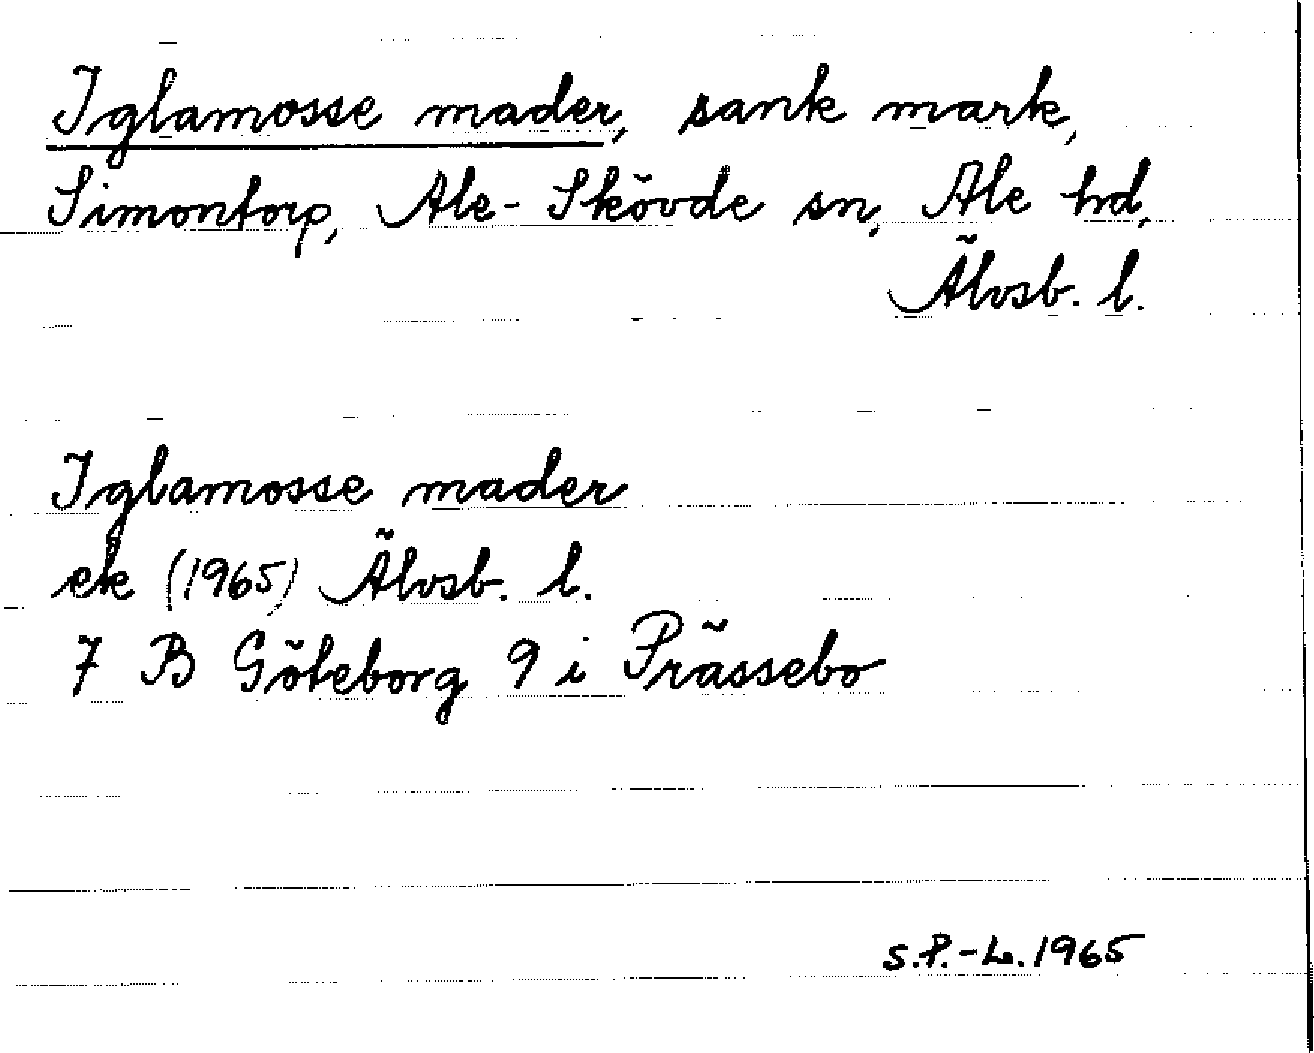 Iglamosse mader, sank mark,
Simontorp, Ale-Skövde sn, Ale hd,
Älvsb. l.
Iglamosse mader
ek (1965) Älvsb. l.
7 B Göteborg 9 i Prässebo
S.P.-L. 1965